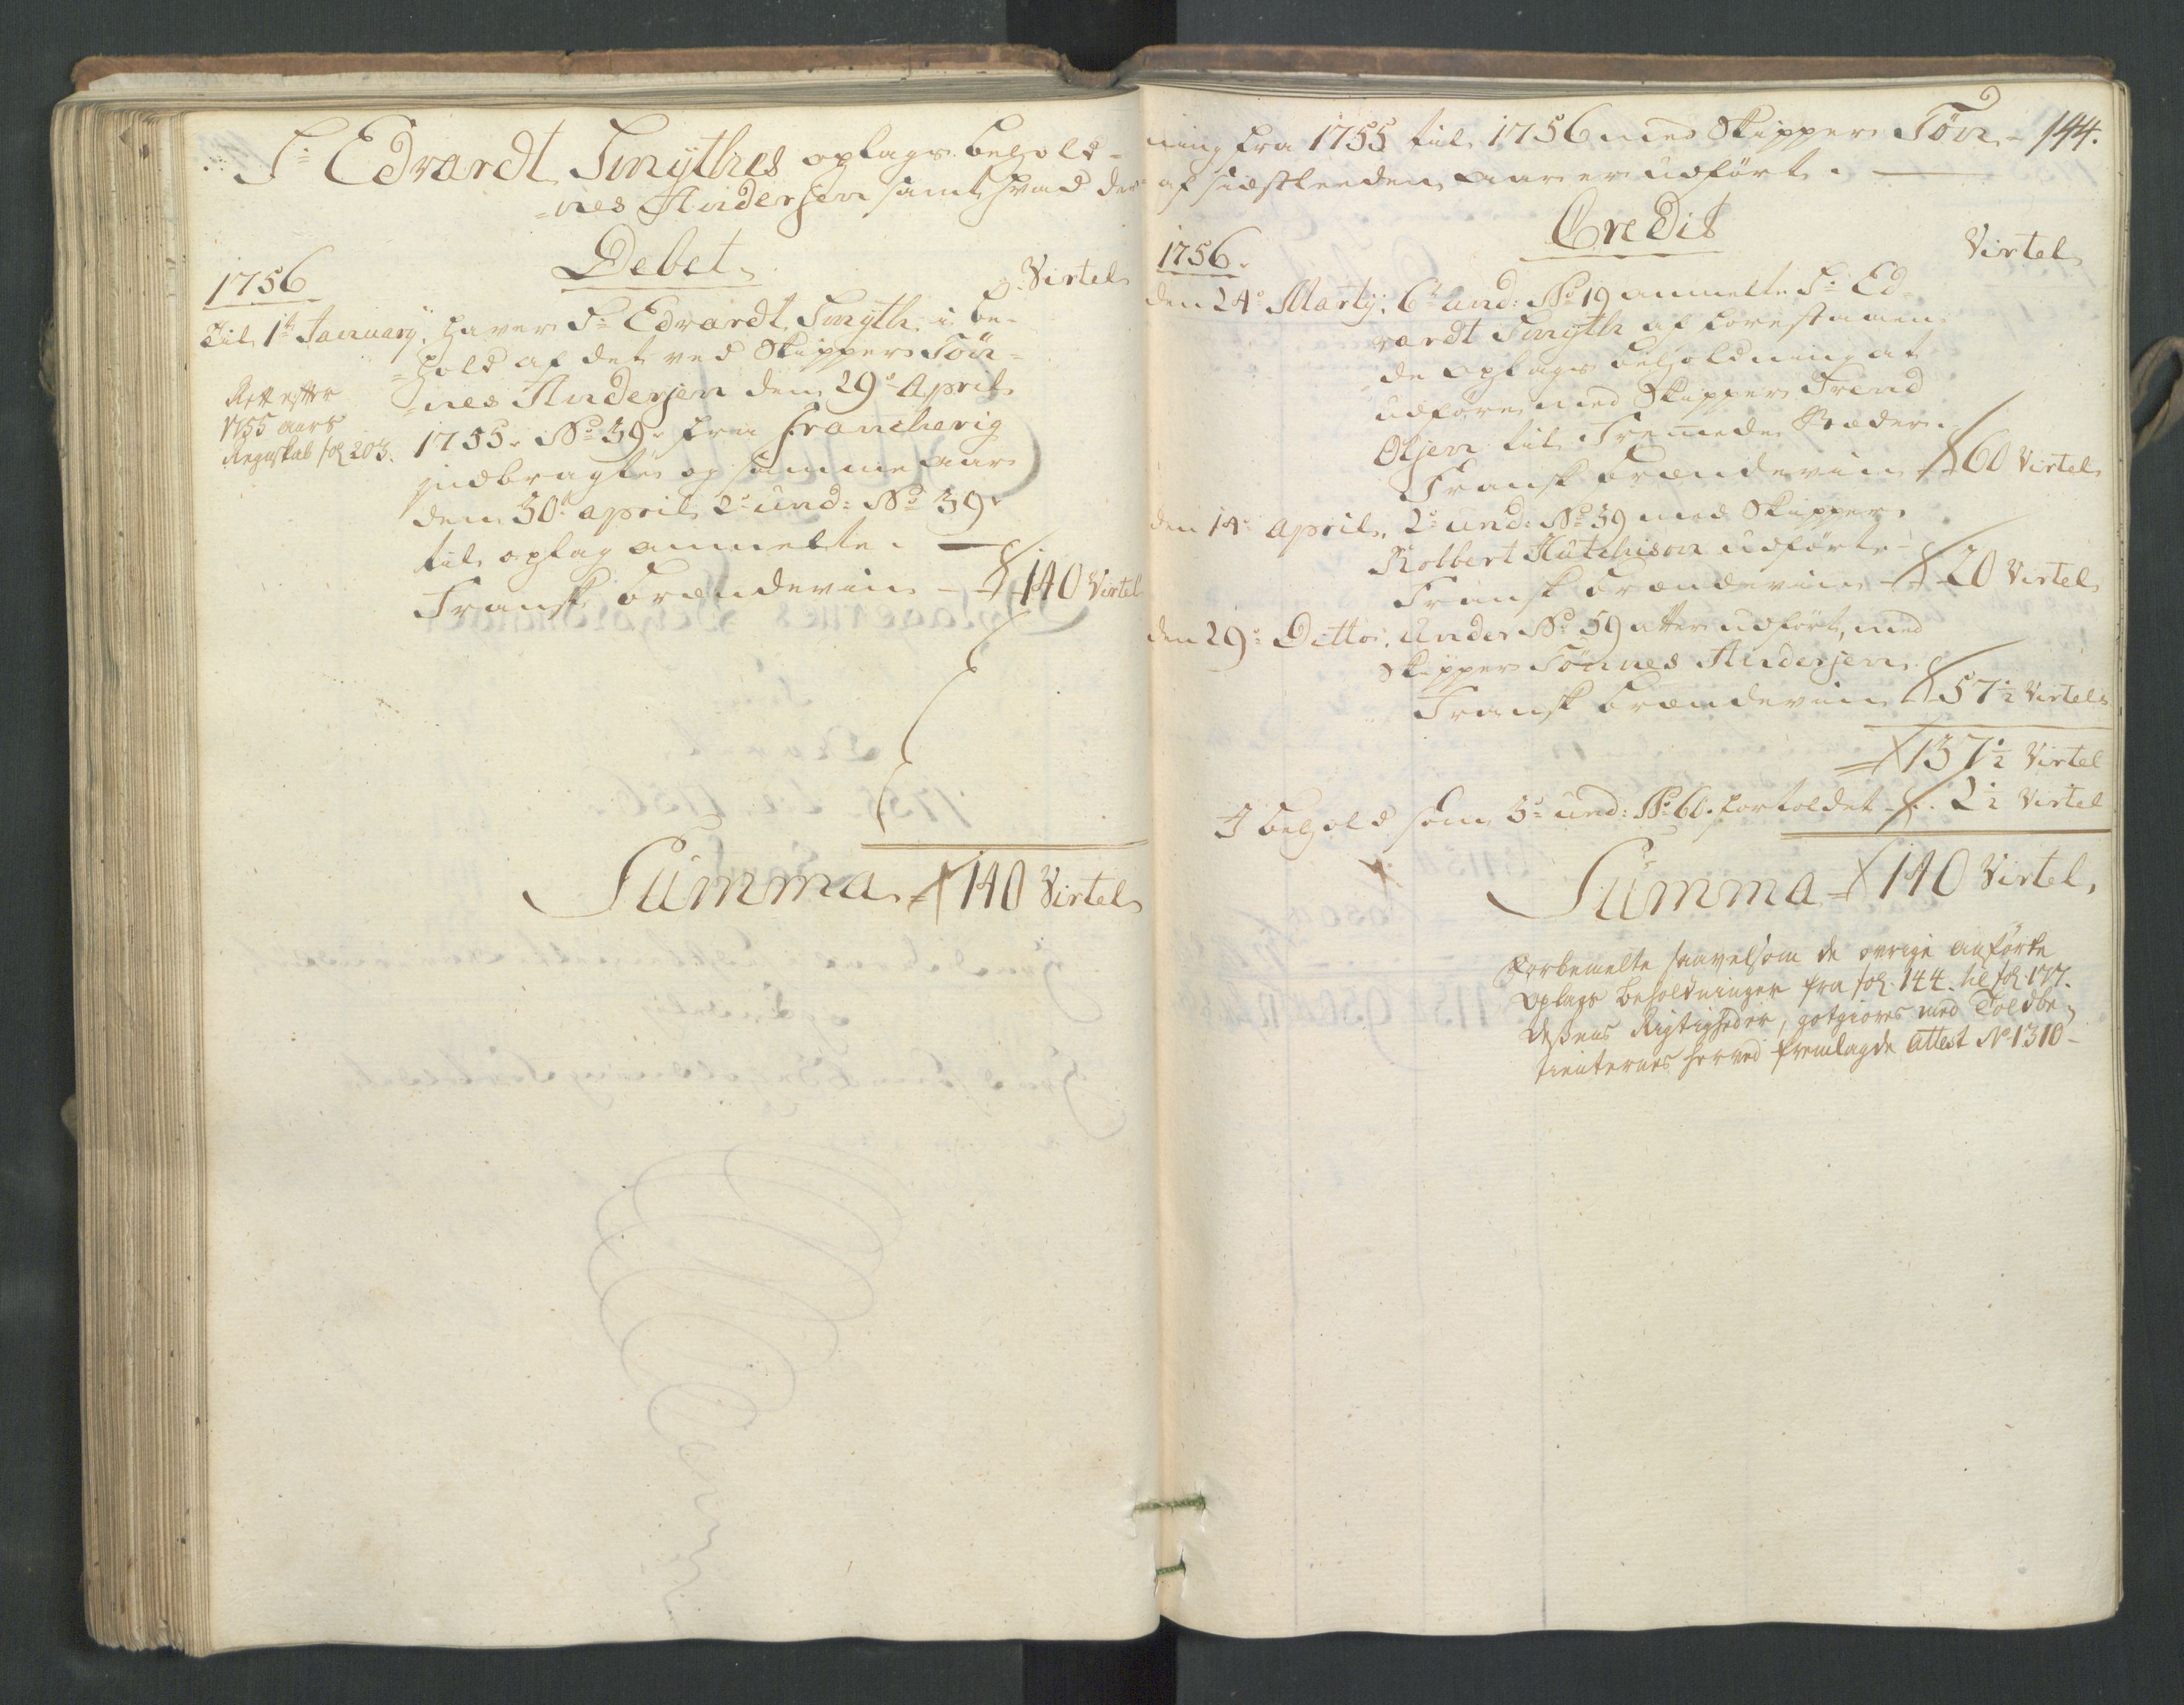 Sr Edvardt Smythes oplags behold-
ning fra 1755 til 1756 med Skipper Tön-
144.
=nes Andersen samt hvad der
af sidstleeden Aar er udfört.
Debet
1756
Virtel
Til 1te January haver Sr Edvardt Smyth i be-
=hold af det ved Skipper Tön-
=nes Andersen den 29de April
1755 No 39 fra Francherig
indbragte og samme aar
den 30te april 2de und: No 39
til oplag anmelte
Fransk brændeviin 140 Virtel
Rett efter
1755 aars
Regnskab fol 203.
Summa 140 Virtel
Credit
1756.
Virtel
den 24de Marty, 6te und: No 19 anmelte Sr Ed-
vardt Smyth af forestaaen-
de oplags beholdning at
udföre med Skipper Trend
Olsen til Fremmede Stæder
Fransk brændeviin 60 Virtel
den 14de April, 2de und: No 39 med Skipper
Rolbert Hutchison udfört
Fransk brændeviin 20 Virtel
den 29de Ditto, under No 59 atter udfört, med
Skipper Tönnes Andersen
Fransk brændeviin 57½ Virtel
137½ Virtel
I behold som 3de und: No 60. fortoldet 2½ Virtel
Summa 140 Virtel
Forbemelte saavelsom de övrige anförte
Oplags beholdninger fra fol. 144. til fol. 177.
Deßens Rigtigheder, gotgiöres med Toldbe-
tienternes herved fremlagde Attest No 1310